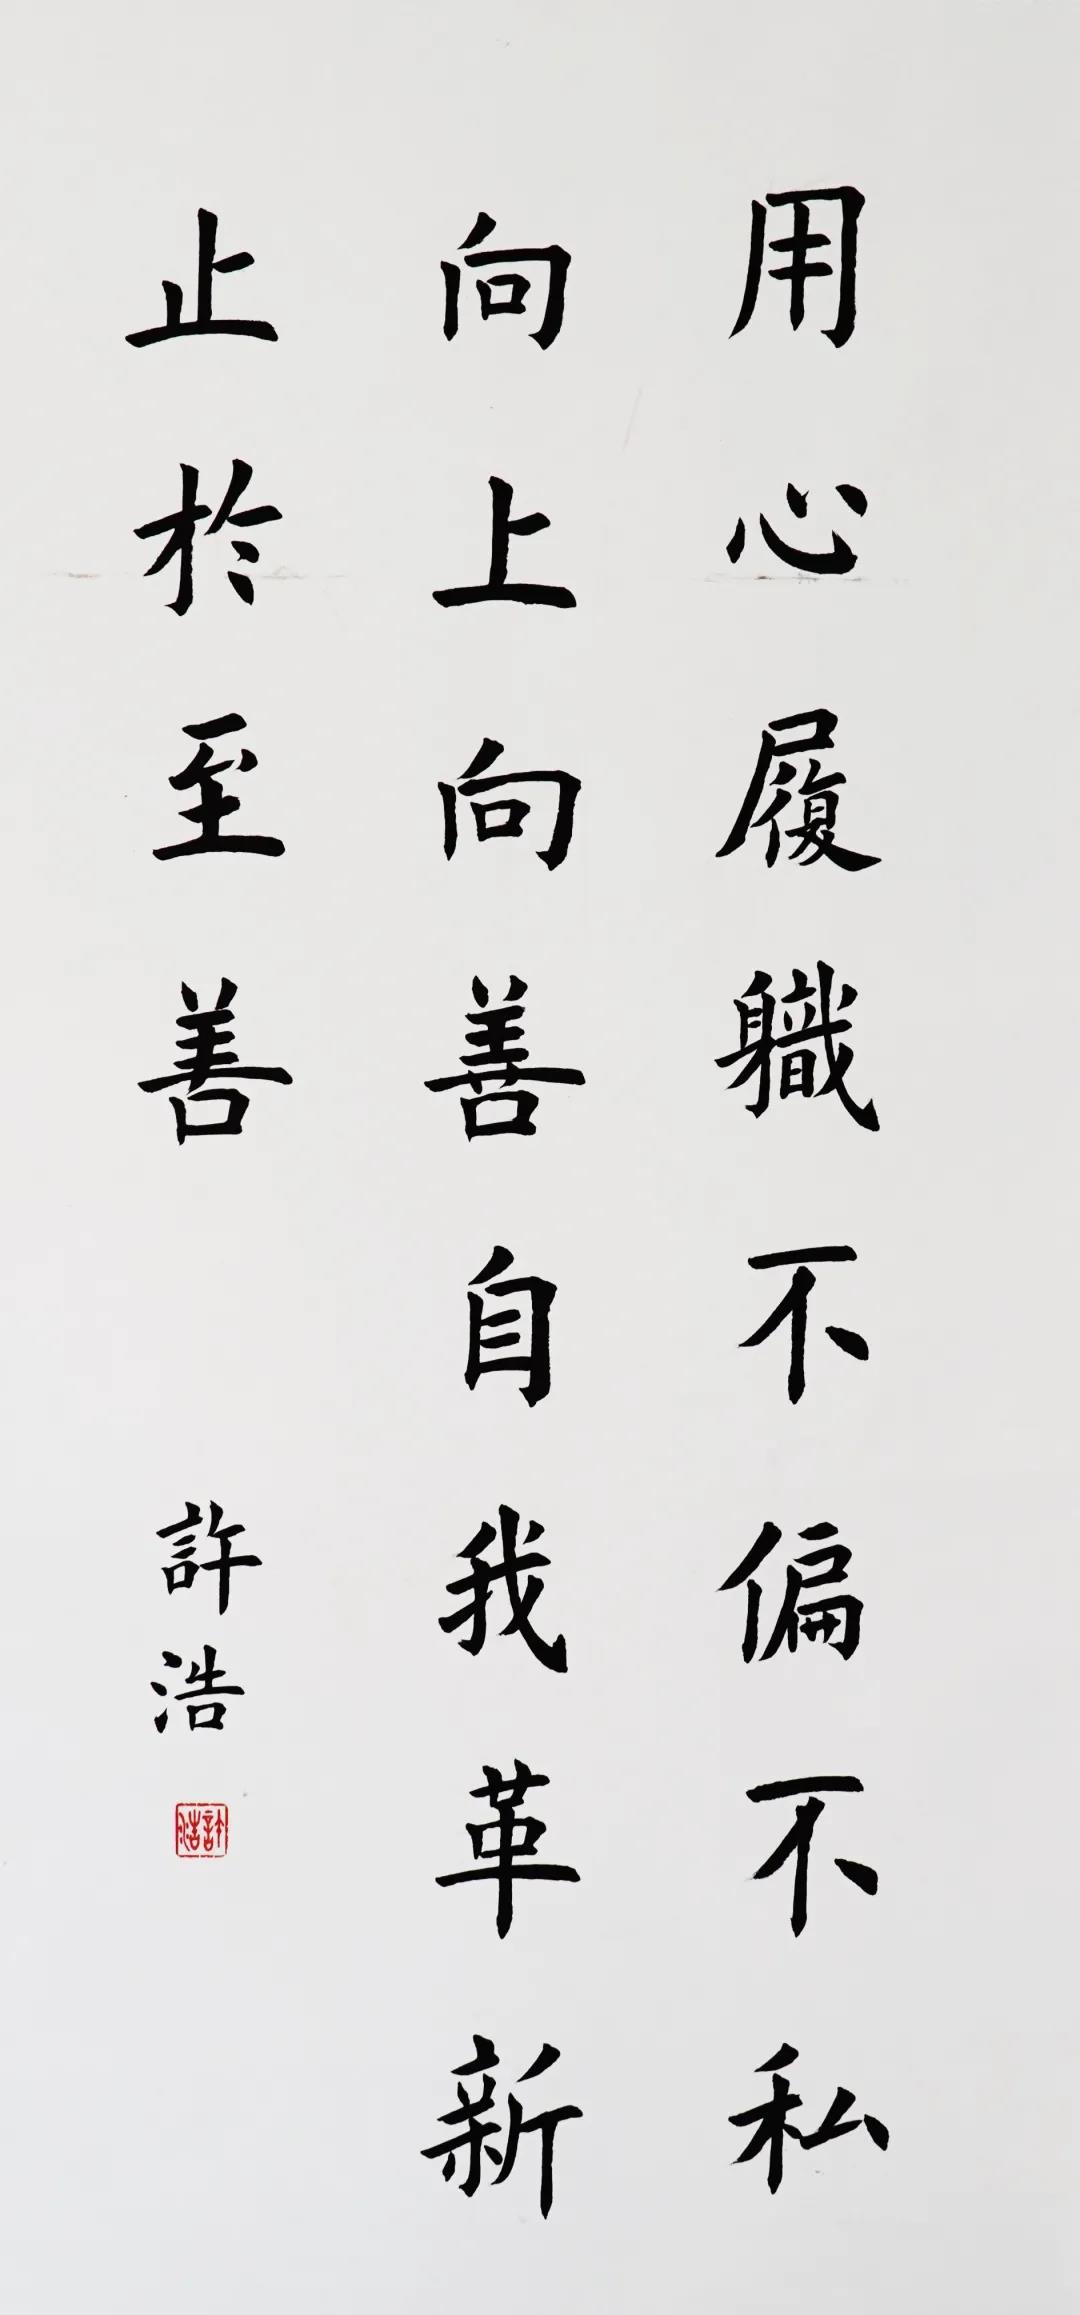 用心履軄不偏不私
向上向善自我革新
止於至善
許浩
許浩